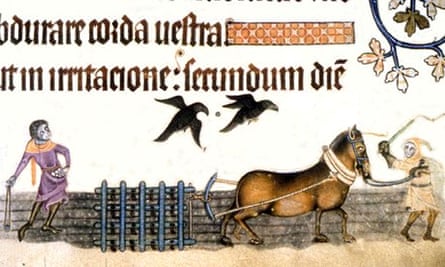 bdurare corda uestra
ut in irritacione: secundum diē